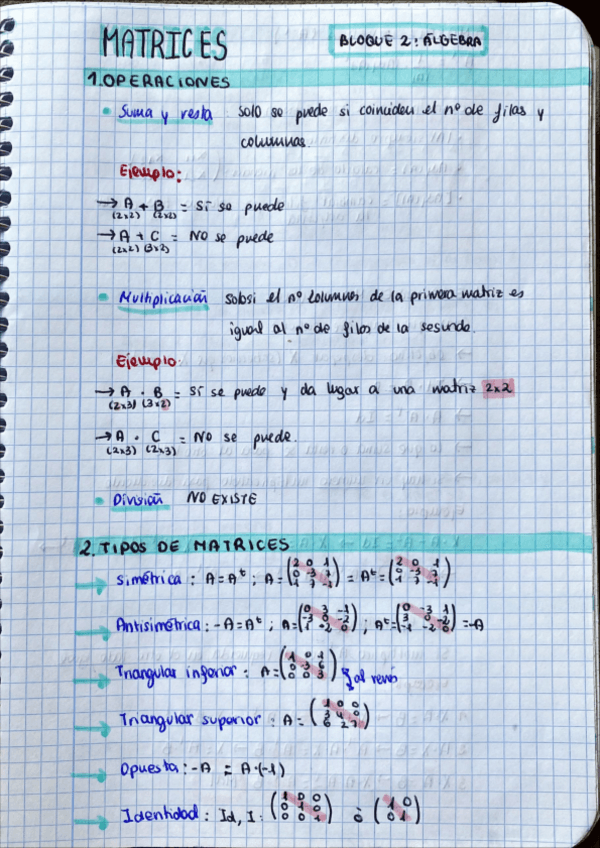 MATRICES
BLOQUE 2: ÁLGEBRA
1. OPERACIONES
• Suma y resta solo se puede si coinciden el nº de filas y
columnas.
Ejemplo:
→ A + B = Sí se puede
(2x2) (2x2)
→ A + C = NO se puede
(2x2) (3x2)
• Multiplicación solo si el nº columnas de la primera matriz es
igual al nº de filas de la segunda.
Ejemplo:
→ A · B = Sí se puede y da lugar a una matriz 2x2
(2x3) (3x2)
→ A · C = NO se puede.
(2x3) (2x3)
• División NO EXISTE
2. TIPOS DE MATRICES
→ Simétrica: A = Aᵗ; A = (2 0 1 / 0 -3 7 / 1 7 -1) = Aᵗ = (2 0 1 / 0 -3 7 / 1 7 -1)
→ Antisimétrica: -A = Aᵗ; A = (0 3 -1 / -3 0 -2 / 1 -2 0); Aᵗ = (0 -3 1 / 3 0 -2 / -1 -2 0) = -A
→ Triangular inferior: A = (1 0 1 / 0 3 6 / 0 0 3) } al revés
→ Triangular superior: A = (1 0 0 / 3 4 0 / 6 2 7)
→ Opuesta: -A = A·(-1)
→ Identidad: Id, I: (1 0 0 / 0 1 0 / 0 0 1) ó (1 0 / 0 1)